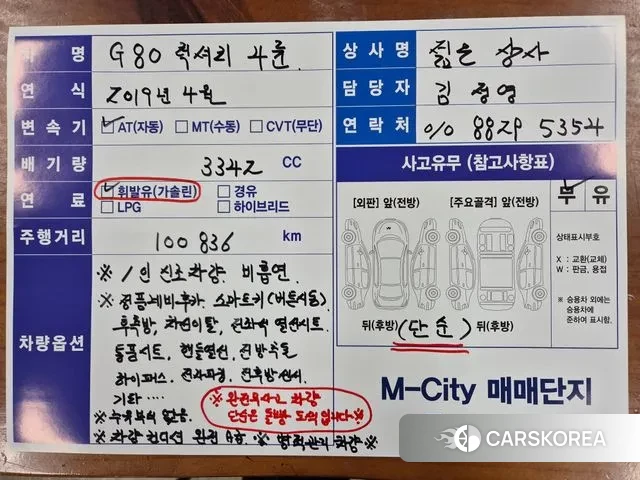 차 명 G80 럭셔리 4륜
연 식 2019년 4월
변 속 기 AT(자동) MT(수동) CVT(무단)
배 기 량 3342 CC
연 료 휘발유(가솔린) 경유
LPG 하이브리드
주행거리 100836 km
차량옵션
※ 1인 신조차량 비흡연
※ 정품네비후카 스마트키(버튼시동)
후측방, 차선이탈, 전좌석 열선시트
통풍시트, 핸들열선, 전방추돌
하이패스, 전자파킹, 전후방센서
기타 ....
※ 누유누수 없음.
※ 완전무사고 차량
단순은 뒷빵 도어입니다 ※
※ 차량 컨디션 완전 A급 ※ ※ 완벽관리 차량 ※
상 사 명 젊은 상사
담 당 자 김 정영
연 락 처 010 8829 5354
사고유무 (참고사항표)
[외판] 앞(전방) [주요골격] 앞(전방)
무 유
상태표시부호
X : 교환(교체)
W : 판금, 용접
※ 승용차 외에는
승용차에
준하여 표시함.
W
뒤(후방) (단순) 뒤(후방)
M-City 매매단지
CARSKOREA